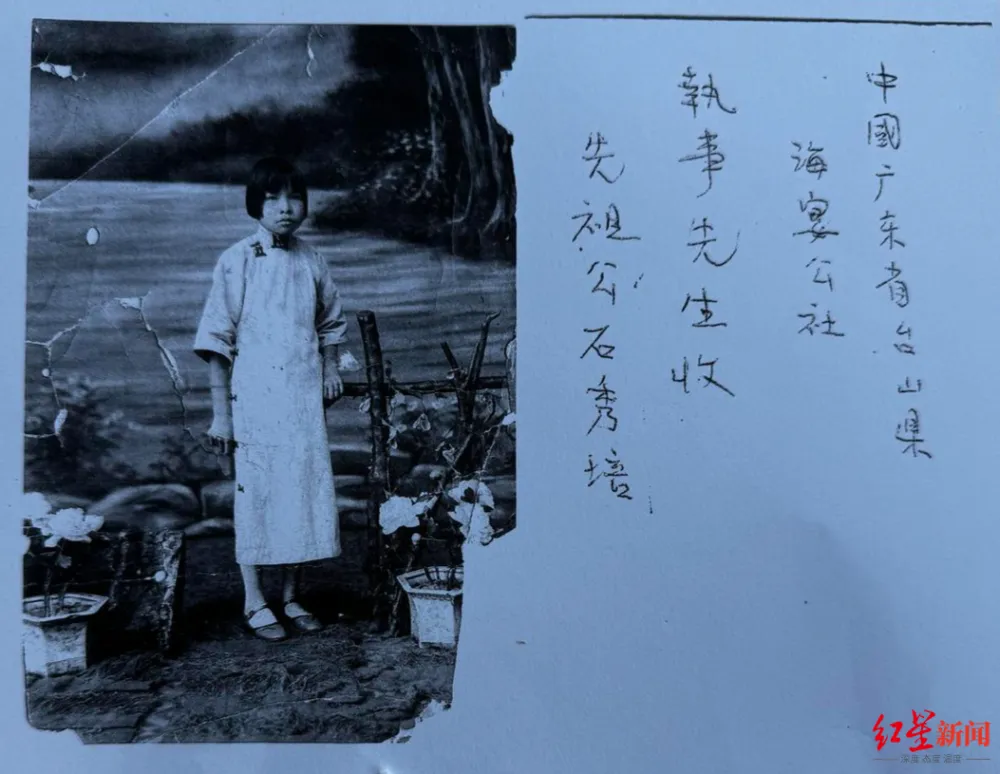 中國广东省台山県
海宴公社
執事先生收
先祖公石秀培
红星新闻
深度 态度 温度